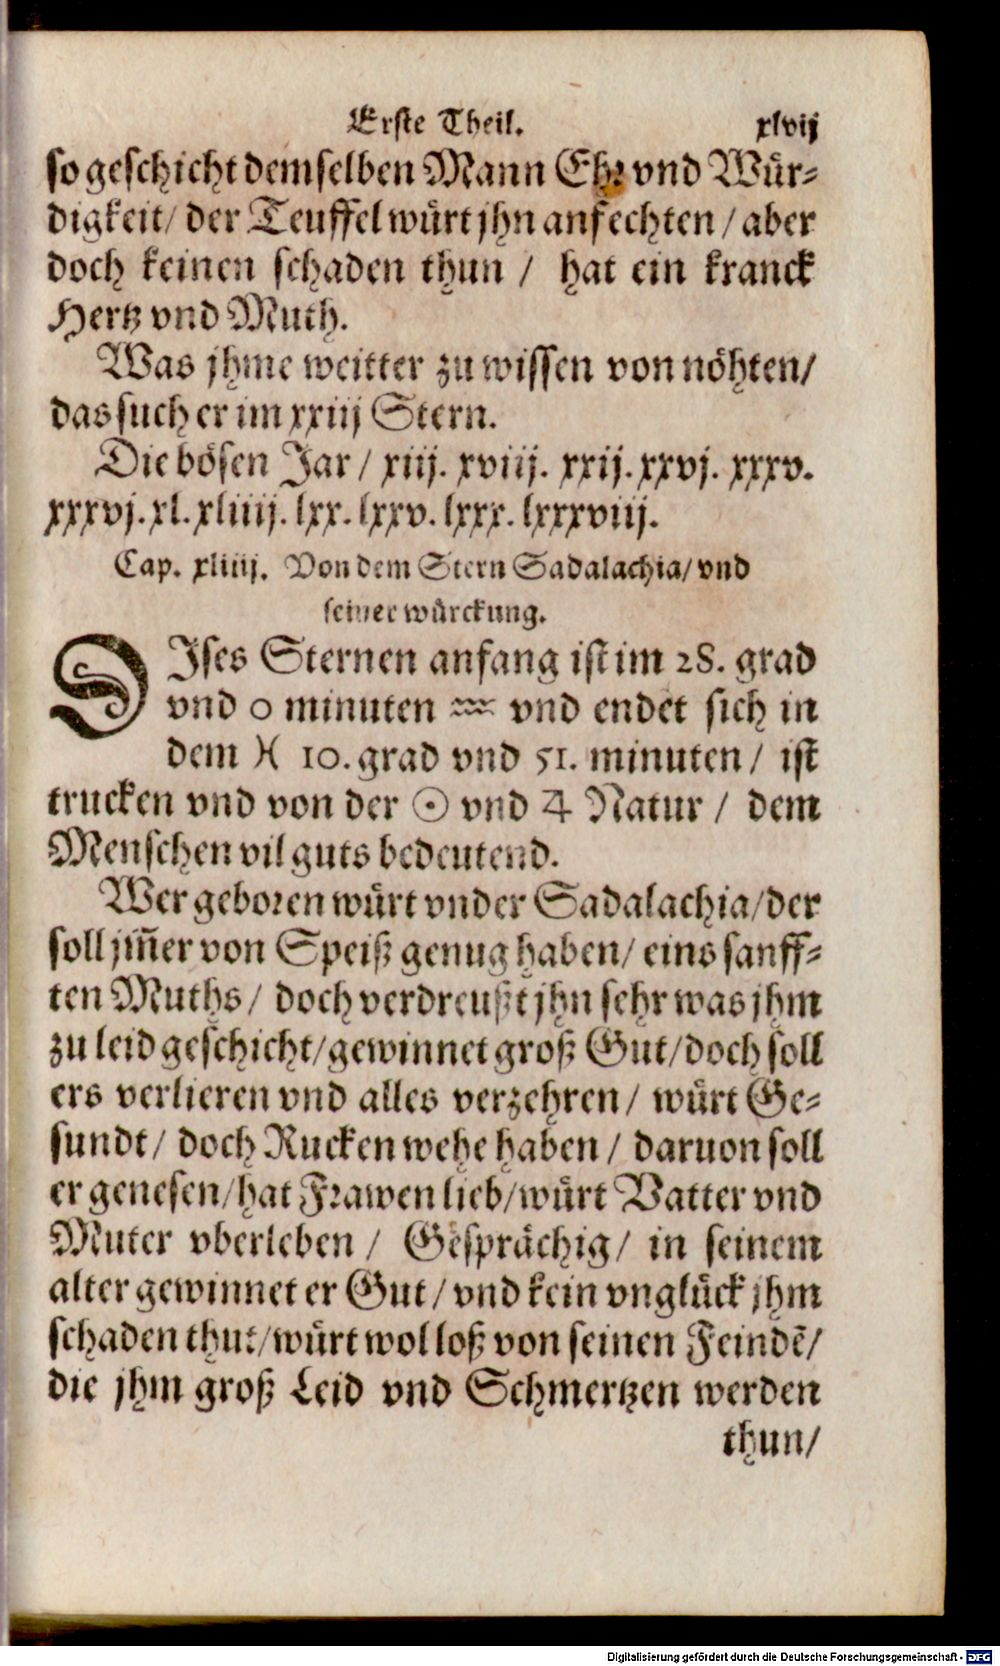 Erste Theil. xlvij
so geschicht demselben Mann Ehr vnd Wür-
digkeit/ der Teuffel würt jhn anfechten / aber
doch keinen schaden thun / hat ein kranck
Hertz vnd Muth.
Was jhme weitter zu wissen von nöhten/
das such er im xxiij Stern.
Die bösen Jar / xiij. xviij. xxij. xxvj. xxxv.
xxxvj. xl. xliiij. lxx. lxxv. lxxx. lxxxviij.
Cap. xliiij. Von dem Stern Sadalachia/ vnd
seiner würckung.
DIses Sternen anfang ist im 28. grad
vnd 0 minuten ♒ vnd endet sich in
dem ♓ 10. grad vnd 51. minuten / ist
trucken vnd von der ☉ vnd ♃ Natur / dem
Menschen vil guts bedeutend.
Wer geboren würt vnder Sadalachia/der
soll jm̃er von Speiß genug haben/ eins sanff-
ten Muths / doch verdreußt jhn sehr was jhm
zu leid geschicht/gewinnet groß Gut/doch soll
ers verlieren vnd alles verzehren / würt Ge-
sundt / doch Rucken wehe haben / daruon soll
er genesen/hat Frawen lieb/würt Vatter vnd
Muter vberleben / Gesprächig/ in seinem
alter gewinnet er Gut / vnd kein vnglück jhm
schaden thut/würt wol loß von seinen Feindẽ/
die jhm groß Leid vnd Schmertzen werden
thun/
Digitalisierung gefördert durch die Deutsche Forschungsgemeinschaft - DFG